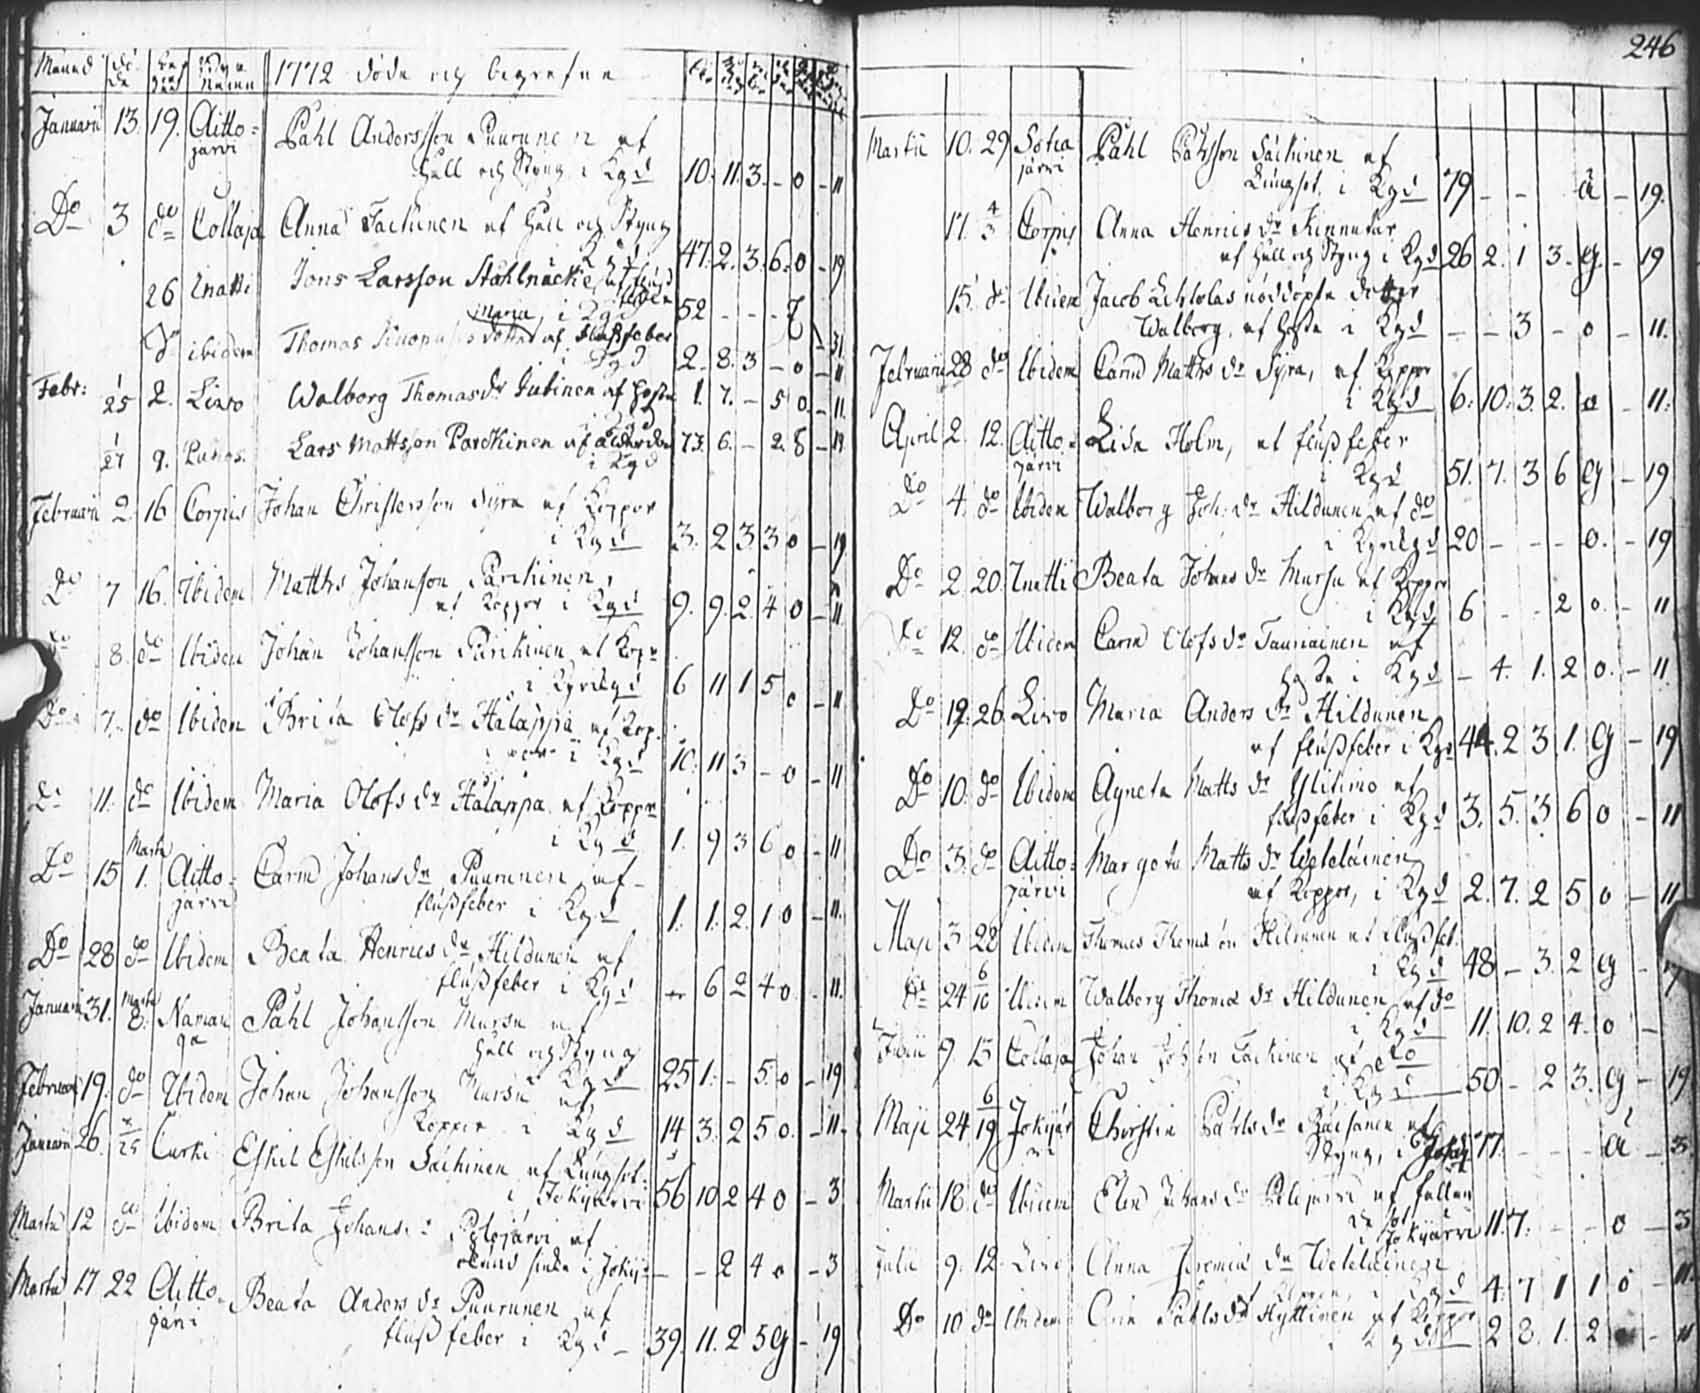 Månad dö de Byn Namn 1772 döde och begrafne
Januarii 13. 19. Aitto= Påhl Andersson Puurunen af
järvi håll och styng i Kgd 10. 11. 3. - 0 - 11
Do 3 do Collaja Anna Tackinen af håll och styng
i Kgd 47. 2. 3. 6. 0 - 19
26 Inatti Jöns Larsson Stählnacke,
i Kgd 52 - - -
Maria
do ibidem Thomas dotter af flussfeber
2. 8. 3 - 0 - 11
Febr: 1/25 2. Livo Walborg Thomasdr Jutinen af hosta 1. 7. - 5 0. - 11.
1/27 9. Lars Mattsson Parckinen af ålderdom 73. 6. - 2. - 19
i Kgd
Februarii 2. 16 Corpus Johan Christersson Syra af Koppor
i Kgd 3. 2 3. 3 0 - 19
Do 7 16. Ibidem Matths Johansson Parckinen,
af Koppor i Kgd 9. 9. 2. 4 0 - 11
do 8. do Ibidem Johan Johansson Parckinen af Kopr
i Kyrckgd 6 11 1 5 0 - 11
Do 7. do Ibidem Brita Olofs dr Halappa af Kop-
i Kgd 10. 11 3 - 0 - 11
Do 11. do Ibidem Maria Olofs dr Halappa af Koppr
i Kgd 1. 9 3 6 0 - 11
Do 15 Martii 1. Aitto= Carin Johansdr Puurunen af
järvi flussfeber i Kgd 1. 1. 2. 1 0 - 11.
Do 28 do Ibidem Beata Henricsdr Hildunen af
flussfeber i Kgd - 6 2 4 0 - 11.
Januarii 31. Martii 8. Naman Påhl Johansson Mursu af
ga håll och styng
i Kgd 25 1. - 5. 0 - 19
Februarii 19. do Ibidem Johan Johansson Mursu af
Koppor i Kgd 14 3. 2 5 0. - 11.
Januarii 26. 25 Curki Eskil Eskilsson Säckinen af Lungsot
i Jokijärvi 56 10 2 4 0 - 3
Martii 12 do Ibidem Brita Johans Polojärvi af
i Jokij: - - 2 4 0 - 3
Martii 17 22 Aitto- Beata Anders dr Puurunen af
järvi fluss feber i Kgd - 39. 11. 2 5 g - 19
246
Martii 10. 29 Sotka Påhl Påhlsson Säckinen af
järvi Lungsot i Kgd 79 - - - ä - 19.
17. 4/3 Corpus Anna Henrics dr Kinnutar
af håll och styng i Kgd 26 2. 1 3 - g. - 19
15. do Ibidem Jacob Lehtolas nöddöpta dotter
Walborg, af hosta i Kgd - - 3 - 0 - 11.
Februarii 28 do Ibidem Carin Matths dr Syra, af Koppor
i Kgd 6. 10. 3. 2. 0 - 11.
April 2. 12. Aitto- Lisa Holm, af flussfeber
järvi i Kgd 51. 7. 3 6 g - 19
Do 4. do Ibidem Walborg Joh: dr Hildunen af do
i Kyrckgd 20 - - - 0. - 19
Do 2 20. Inatti Beata Johans dr Mursu af Koppor
i Kgd 6 - - 2 0. - 11
do 12. do Ibidem Carin Olofs dr Tauriainen af
hosta i Kgd - 4. 1. 2 0. - 11
Do 19. 26. Livo Maria Anders dr Hildunen
af flussfeber i Kgd 44. 2 3 1. g - 19
Do 10. do Ibidem Agneta Matts dr Ylitimo af
flussfeber i Kgd 3. 5. 3 6 0 - 11
Do 3. do Aitto= Margeta Matts dr Weteläinen
järvi af Koppor, i Kgd 2. 7. 2 5 0 - 11
Maji 3 28 Ibidem Thomas Thomsson Hildunen af flussfeb.
i Kgd 48 - 3. 2 g -
do 24 6/10 Ibidem Walborg Thomæ dr Hildunen af do
i Kgd 11. 10. 2 4. 0 -
Junii 9. 13 Collaja Johan Johsson Tackinen af do
i Kgd 50 - 2 3. g - 19
Maji 24 6/19 Jokijär Christin Påhlsdr Räisänen af
vi styng, i Jokij 17. - - - ä - 3
Martii 18. do Ibidem Elin Johans dr Polojärvi af fallan
de sot i Jokijärvi 11. 7. - - 0 - 3
Julii 9. 12. Livo Anna Jeremiæ dr Weteläinen
af Koppor, i Kgd 4. 7 1 1 0 - 11.
Do 10 do Ibidem Carin Påhlsdr Hyttinen af Koppor
i Kgd 2 8. 1. 2 - 11